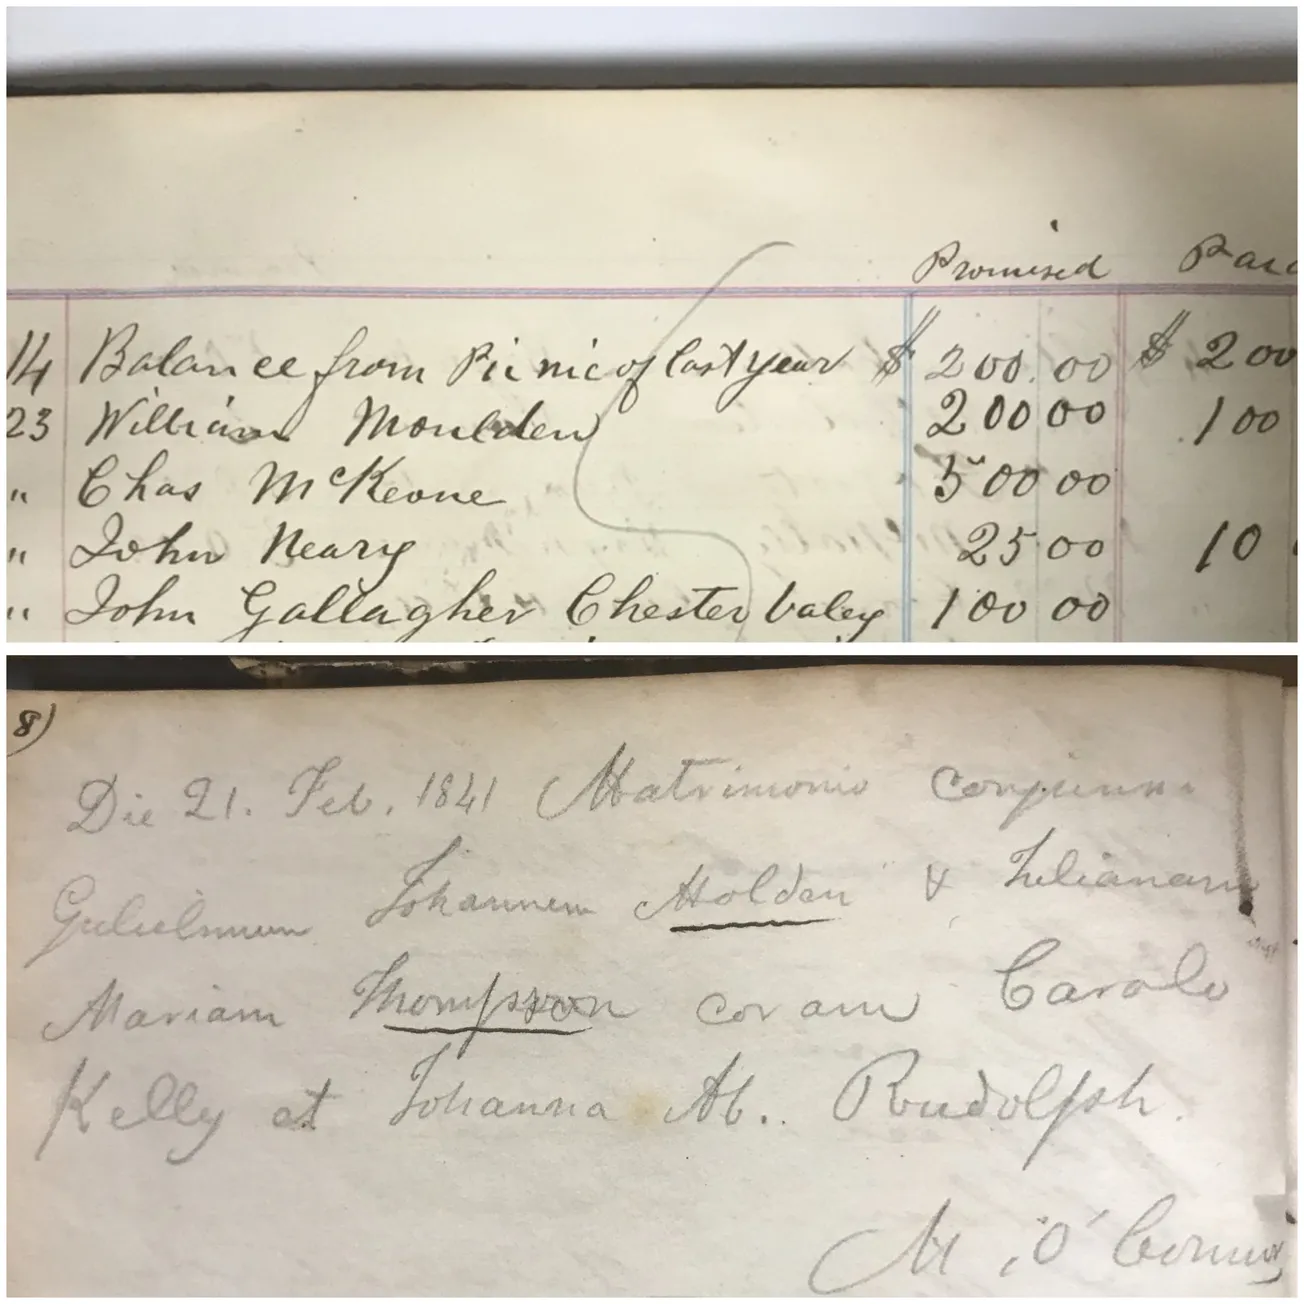 Promised Paid
14 Balance from Picnic of last year $ 200.00 $ 200
23 William Moulden 200 00 100
" Chas McKeone 500 00
" John Neary 25 00 10
" John Gallagher Chester valey 100 00
8)
Die 21. Feb. 1841 Matrimonio conjunxi
Gulielmum Johannem Holden & Julianam
Mariam Thompson coram Carolo
Kelly et Johanna M. Rudolph.
M. O'Connor